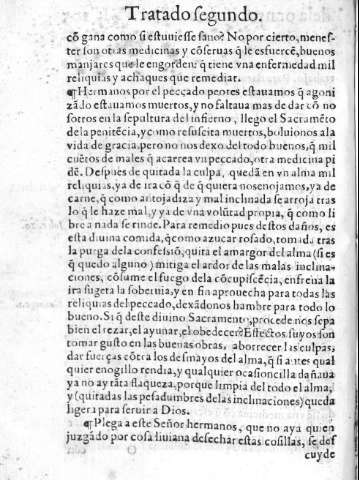 Tratado segundo.
cõ gana como si estuuiesse sano? No por cierto, menes-
ter son otras medicinas y cõseruas q̃ le esfuercẽ, buenos
manjares que le engorden: q̃ tiene vna enfermedad mil
reliquias y achaques que remediar.
¶Hermanos por el peccado peores estauamos q̃ agoni
zãdo estauamos muertos, y no faltaua mas de dar cõ no
sotros en la sepultura del infierno, llego el Sacramẽto
dela penitẽcia, y como resuscita muertos, boluionos ala
vida de gracia, pero no nos dexo del todo buenos, q̃ mil
cuẽtos de males q̃ acarrea vn peccado, otra medicina pi
dẽ. Despues de quitada la culpa, quedã en vn alma mil
reliquias, ya de ira cõ q̃ de q̃ quiera nos enojamos, ya de
carne, q̃ como antojadiza y mal inclinada se arroja tras
lo q̃ le haze mal, y ya de vna volũtad propia, q̃ como li
bre a nada se rinde. Para remedio pues destos daños, es
esta diuina comida, q̃ como azucar rosado, tomada tras
la purga dela confessiõ, quita el amargor del alma (si es
q̃ quedo alguno) mitiga el ardor de las malas inclina-
ciones, cõsume el fuego dela cõcupiscẽcia, enfrena la
ira sugeta la soberuia, y en fin aprouecha para todas las
reliquias del peccado, dexãdonos hambre para todo lo
bueno. Si q̃ deste diuino Sacramento, procede nos sepa
bien el rezar, el ayunar, el obedecer? Efectos suyos son
tomar gusto en las buenas obras, aborrecer las culpas,
dar fuerças cõtra los desmayos del alma, q̃ si antes qual
quier enogillo rendia, y qualquier ocasioncilla dañaua
ya no ay rãta flaqueza, porque limpia del todo el alma,
y (quitadas las pesadumbres delas inclinaciones) queda
ligera para seruir a Dios.
¶Plega a este Señor hermanos, que no aya quien
juzgãdo por cosa liuiana desechar estas cosillas, se des
cuyde